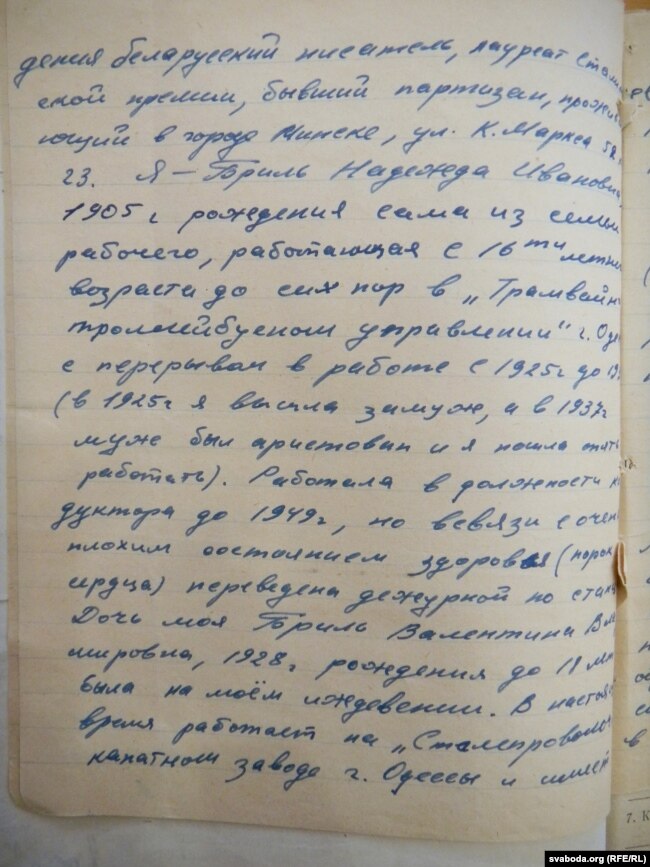 дения беларусский писатель, лауреат Стали
ской премии, бывший партизан, прожив
ющий в городе Минске, ул. К. Маркса
23. Я – Бриль Надежда Ивановна,
1905 г рождения сама из семьи
рабочего, работающая с 16ти летн
возраста до сих пор в „Трамвайн
троллейбусном управлении" г. Оде
с перерывом в работе с 1925г до 19
(в 1925г я вышла замуж, а в 1937г
муж был аристован и я пошла опять
работать). Работала в должности к
дуктора до 1949г, но всвязи с очень
плохим состоянием здоровья (порок
сердца) переведена дежурной по стан
Дочь моя Бриль Валентина Вла
мировна, 1928г рождения до 11 лет
была на моём иждевении. В настоя
время работает на „Сталепроволоч
канатном заводе г. Одессы и имеет
7. К
svaboda.org (RFE/RL)